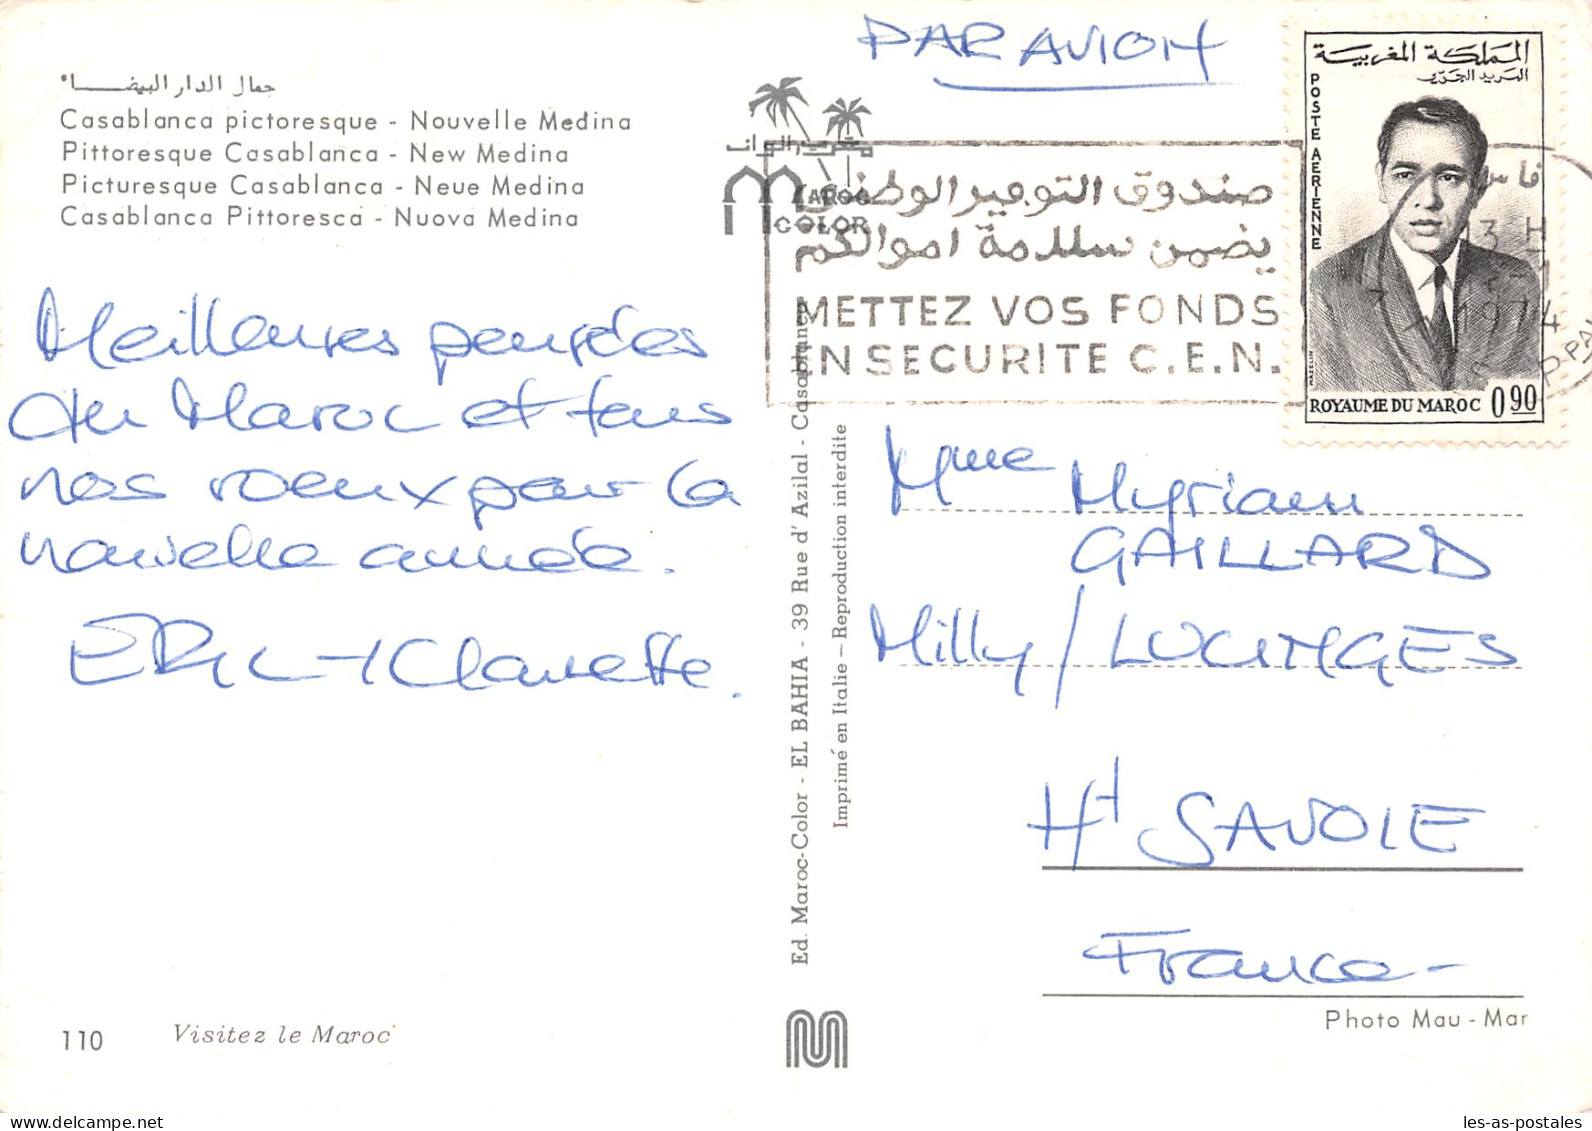 جمال الدار البيضاء
Casablanca pictoresque - Nouvelle Medina
Pittoresque Casablanca - New Medina
Picturesque Casablanca - Neue Medina
Casablanca Pittoresca - Nuova Medina
Meilleures pensées
du Maroc et tous
nos voeux pour la
nouvelle année.
ERIC + Clauette.
110
Visitez le Maroc
Ed. Maroc-Color - EL BAHIA - 39 Rue d'Azilal - Casablanca
Imprimé en Italie - Reproduction interdite
PAR AVION
MAROC
COLOR
صندوق التوفير الوطني
يضمن سلامة اموالكم
METTEZ VOS FONDS
EN SECURITE C.E.N.
المملكة المغربية
البريد الجوي
POSTE AERIENNE
MAZELIN
ROYAUME DU MAROC 0,90
فاس
1974
Mme Myriam
GAILLARD
Milly / LUCINGES
Hte SAVOIE
France -
Photo Mau - Mar
les-as-postales